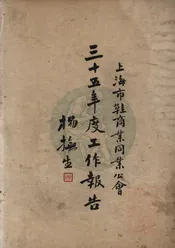 上海市鞋商業同業公會
三十五年度工作報告
楊撫生